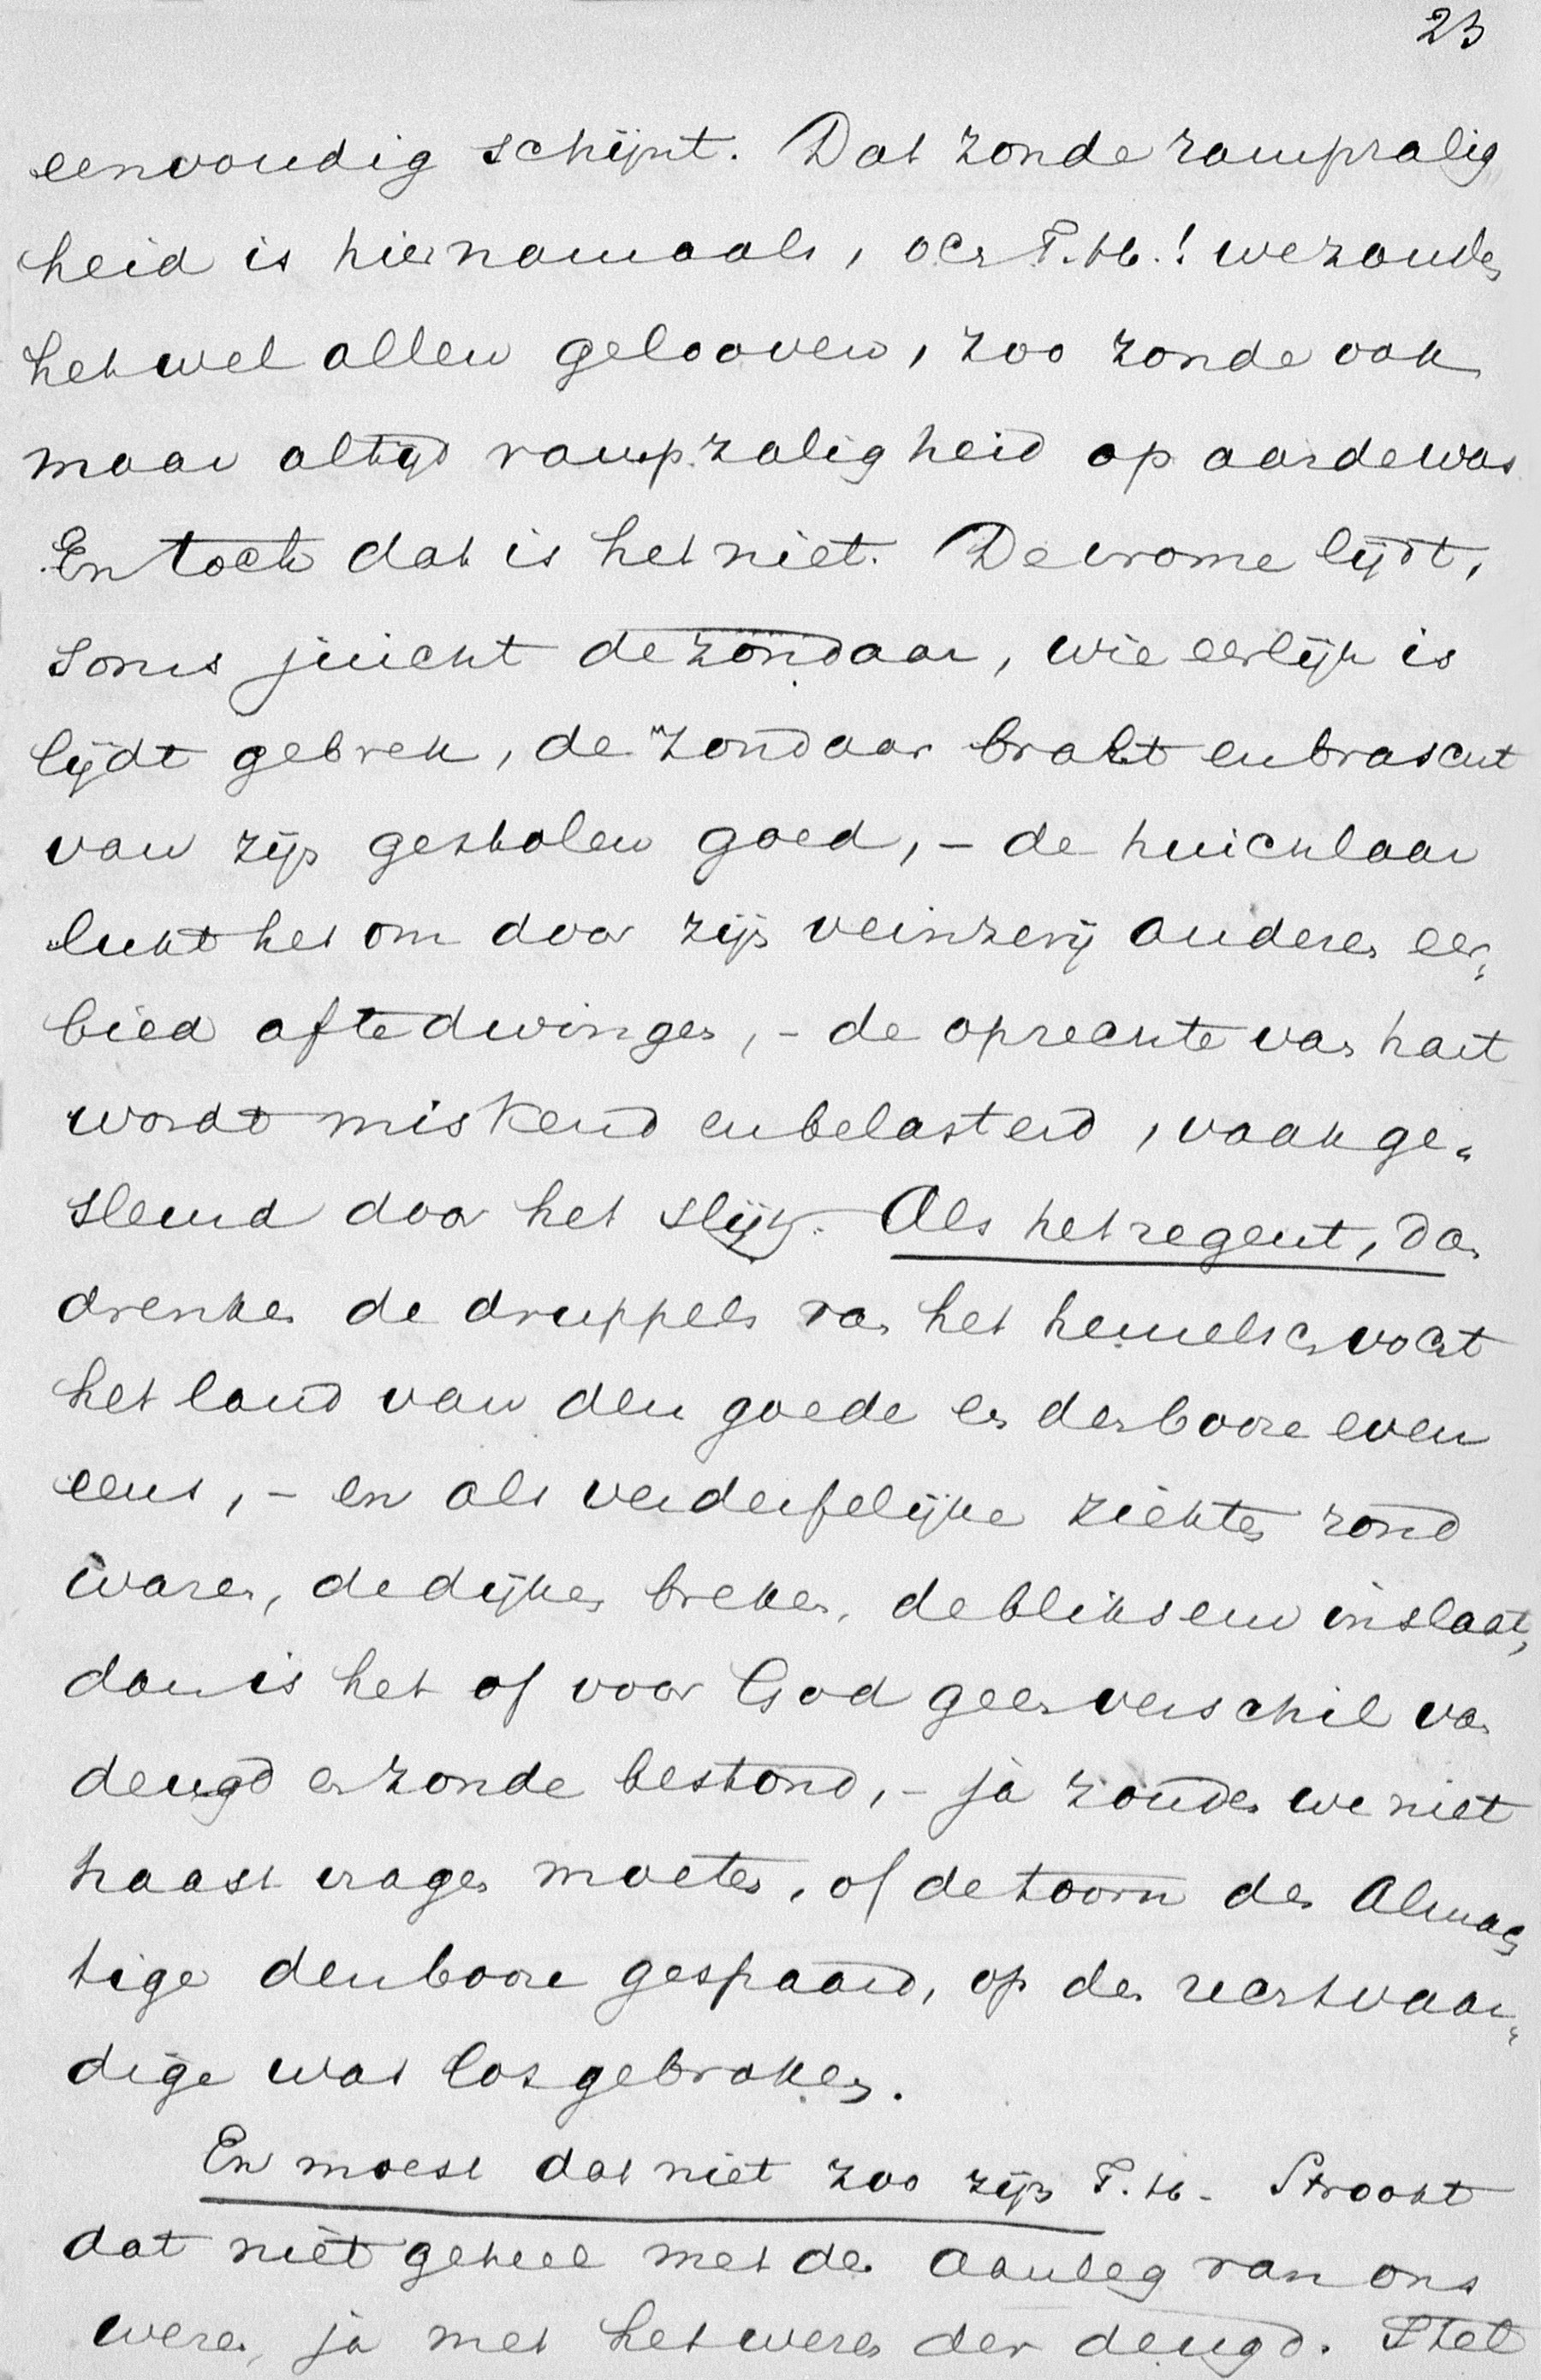 23
eenvoudig schijnt. Dat zonde rampzalig
heid is hiernamaals, och T.H.! we zouden
het wel allen gelooven, zoo zonde ook
maar altijd rampzaligheid op aarde was
En toch dat is het niet. De vrome lijdt,
soms juicht de zondaar, wie eerlijk is
lijdt gebrek, de zondaar bralt en brascht
van zijn gestolen goed, - de huichlaar
lukt het om door zijn veinzerij anderen eer„
bied af te dwingen, - de oprechte van hart
wordt miskend en belasterd, vaak ge„
sleurd door het slijk. Als het regent, dan
drenken de druppels van het hemelsch vocht
het land van den goede en den booze even
eens, - en als verderfelijke ziekten rond
waren, de dijken breken, de bliksem inslaat,
dan is het of voor God geen verschil van
deugd en zonde bestond, - ja zouden we niet
haast vragen moeten, of de toorn des Almach
tige den booze gespaard, op den rechtvaar„
dige was losgebroken.
En moest dat niet zoo zijn T.H. - Strookt
dat niet geheel met den aanleg van ons
wezen, ja met het wezen der deugd. Stel